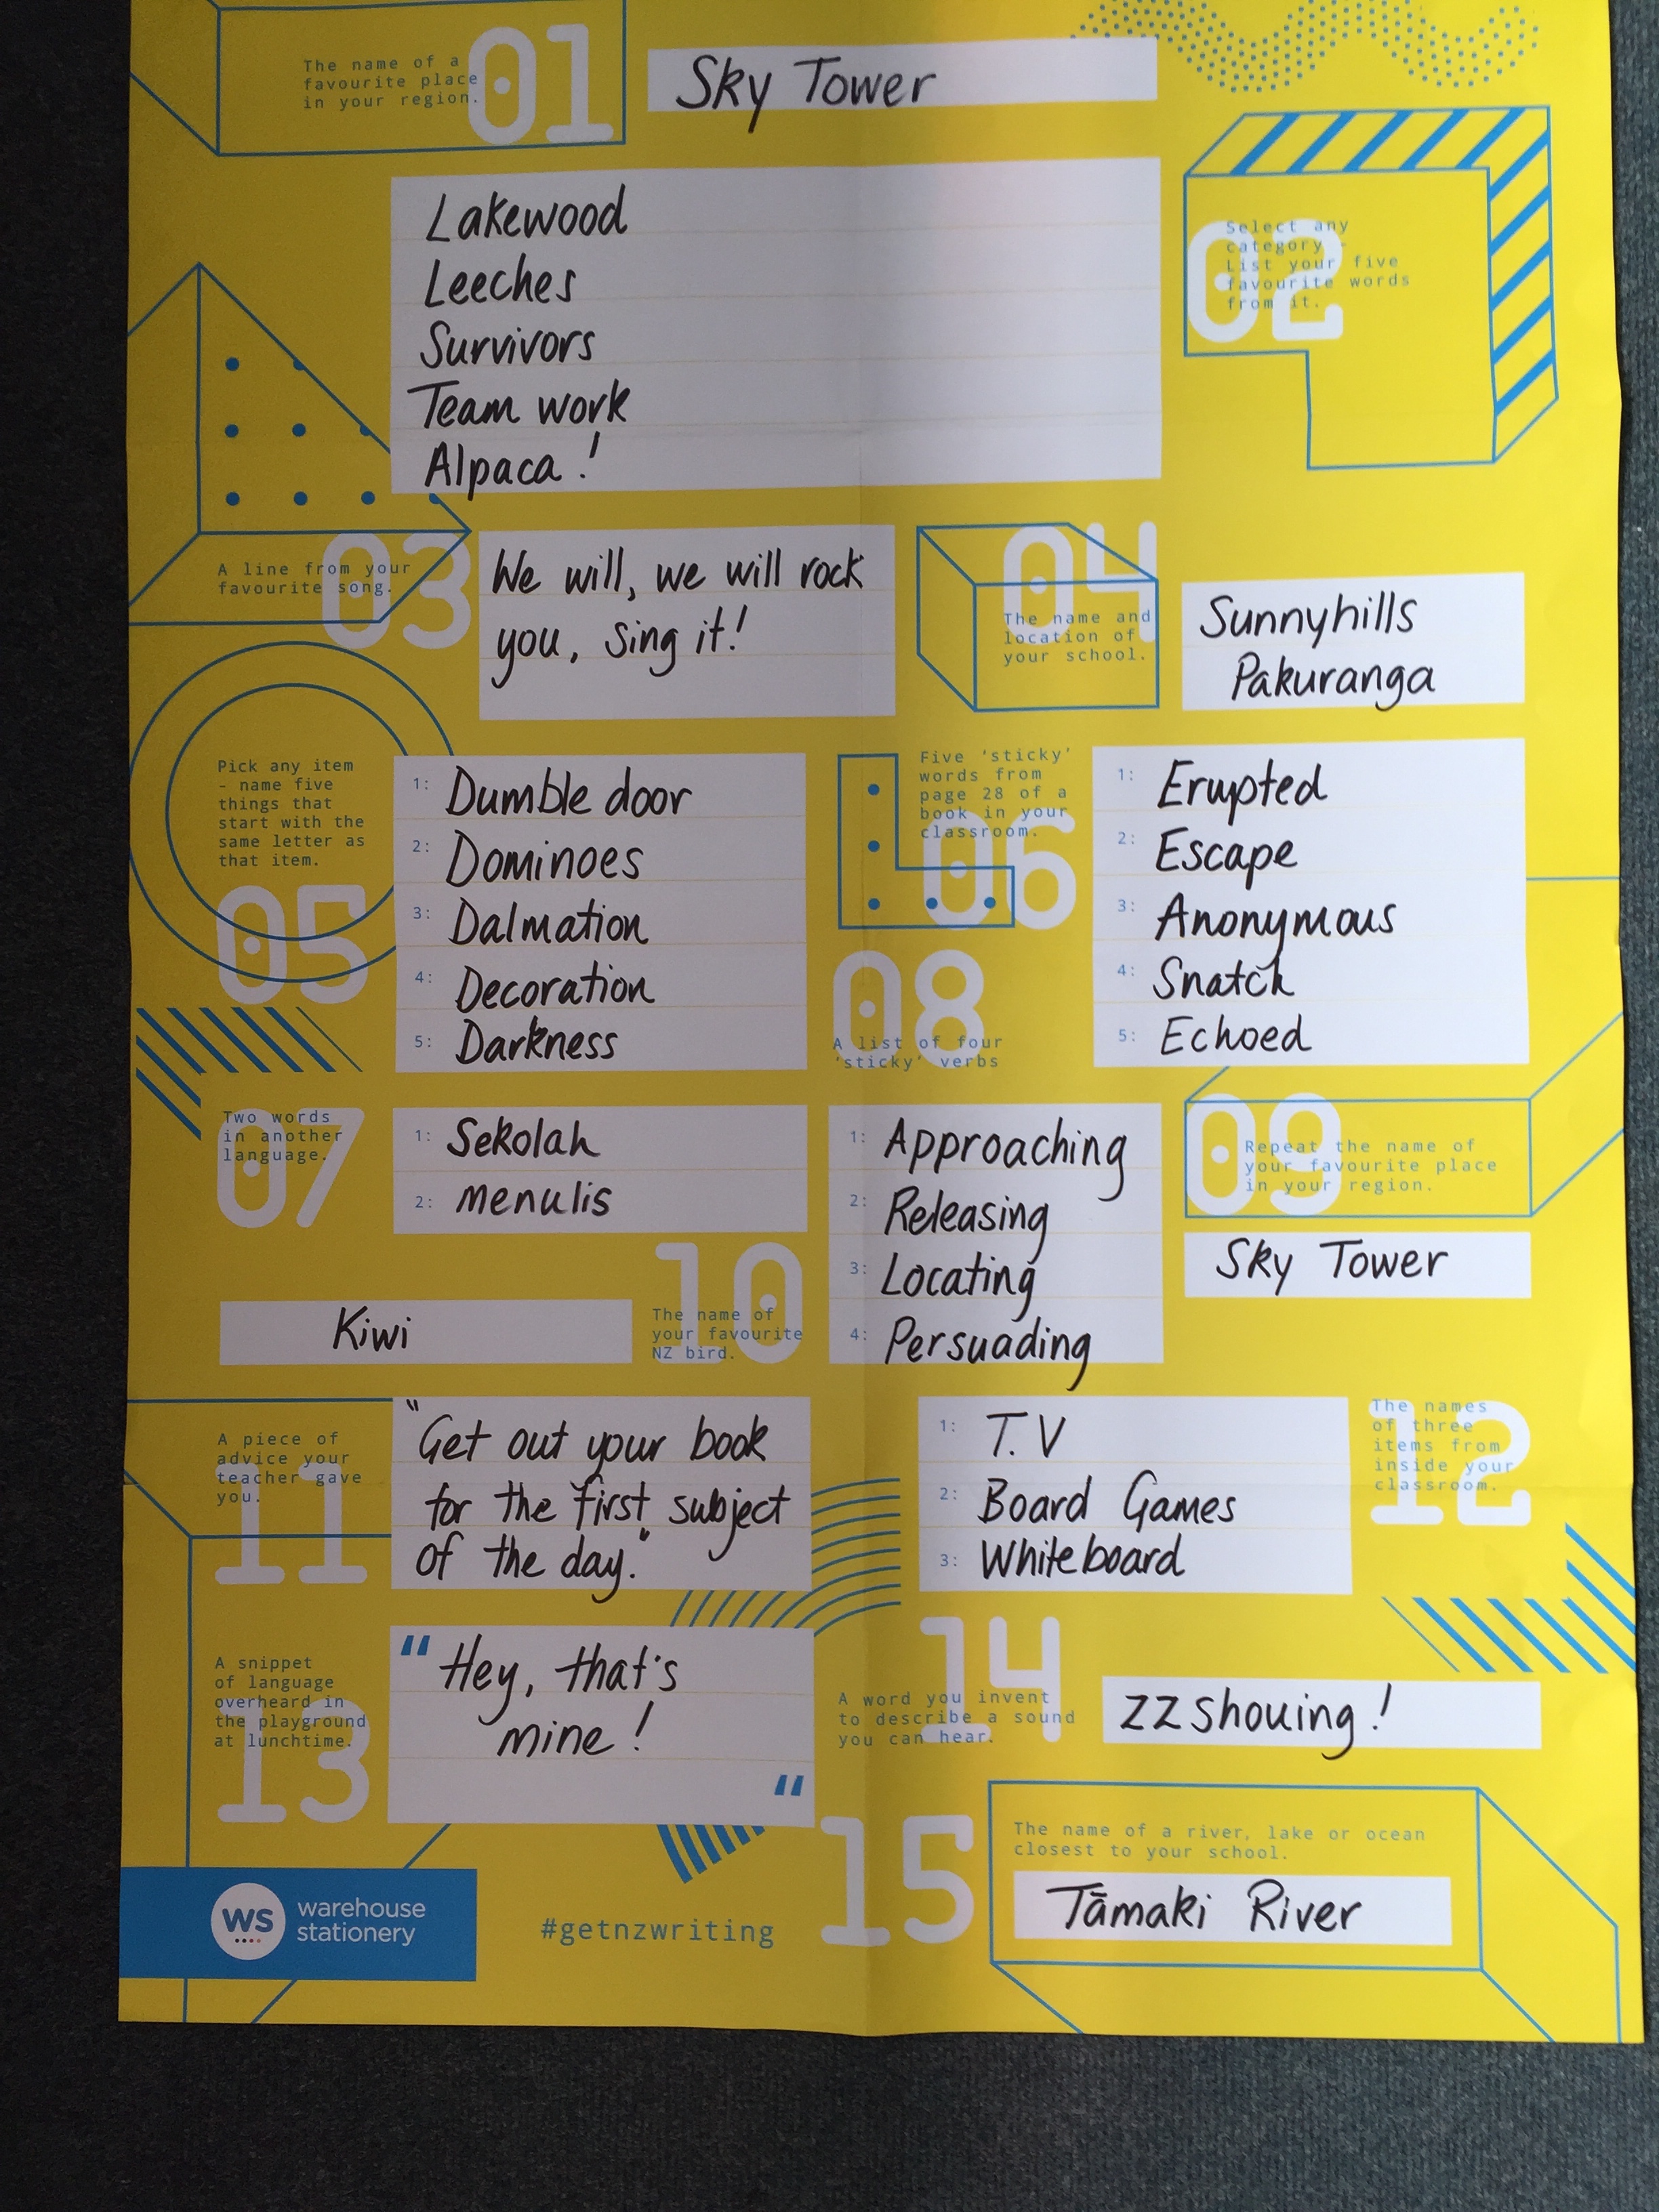 The name of a
favourite place
in your region.
01
Sky Tower
Lakewood
Leeches
Survivors
Team work
Alpaca!
02
Select any
category -
List your five
favourite words
from it.
03
A line from your
favourite song.
We will, we will rock
you, sing it!
04
The name and
location of
your school.
Sunnyhills
Pakuranga
Pick any item
- name five
things that
start with the
same letter as
that item.
05
1: Dumble door
2: Dominoes
3: Dalmation
4: Decoration
5: Darkness
Five 'sticky'
words from
page 28 of a
book in your
classroom.
06
1: Erupted
2: Escape
3: Anonymous
4: Snatch
5: Echoed
07
Two words
in another
language.
1: Sekolah
2: menulis
08
A list of four
'sticky' verbs
1: Approaching
2: Releasing
3: Locating
4: Persuading
09
Repeat the name of
your favourite place
in your region.
Sky Tower
Kiwi
10
The name of
your favourite
NZ bird.
A piece of
advice your
teacher gave
you.
11
"Get out your book
for the first subject
of the day."
1: T.V
2: Board Games
3: Whiteboard
12
The names
of three
items from
inside your
classroom.
A snippet
of language
overheard in
the playground
at lunchtime.
13
“ Hey, that's
mine!
“
14
A word you invent
to describe a sound
you can hear.
zzshouing!
15
The name of a river, lake or ocean
closest to your school.
Tāmaki River
WS
warehouse
stationery
#getnzwriting